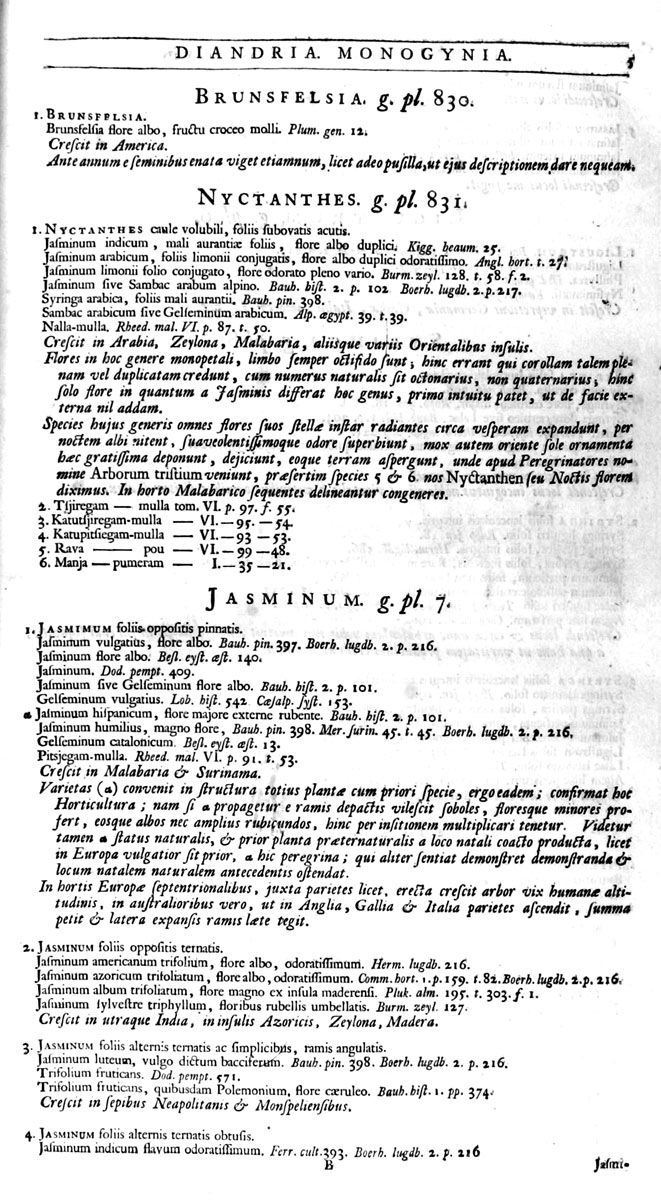 DIANDRIA. MONOGYNIA. 5
BRUNSFELSIA. g. pl. 830.
1. BRUNSFELSIA.
Brunsfelsia flore albo, fructu croceo molli. Plum. gen. 12.
Creſcit in America.
Ante annum e ſeminibus enata viget etiamnum, licet adeo puſilla, ut ejus deſcriptionem dare nequeam.
NYCTANTHES. g. pl. 831.
1. NYCTANTHES caule volubili, foliis ſubovatis acutis.
Jaſminum indicum, mali aurantiæ foliis, flore albo duplici. Kigg. beaum. 25.
Jaſminum arabicum, foliis limonii conjugatis, flore albo duplici odoratiſſimo. Angl. hort. t. 27.
Jaſminum limonii folio conjugato, flore odorato pleno vario. Burm. zeyl. 128. t. 58. f. 2.
Jaſminum ſive Sambac arabum alpino. Bauh. hiſt. 2. p. 102 Boerh. lugdb. 2. p. 217.
Syringa arabica, foliis mali aurantii. Bauh. pin. 398.
Sambac arabicum ſive Gelſeminum arabicum. Alp. ægypt. 39. t. 39.
Nalla-mulla. Rheed. mal. VI. p. 87. t. 50.
Creſcit in Arabia, Zeylona, Malabaria, aliisque variis Orientalibus inſulis.
Flores in hoc genere monopetali, limbo ſemper octifido ſunt; hinc errant qui corollam talem ple-
nam vel duplicatam credunt, cum numerus naturalis ſit octonarius, non quaternarius; hinc
ſolo flore in quantum a Jaſminis differat hoc genus, primo intuitu patet, ut de facie ex-
terna nil addam.
Species hujus generis omnes flores ſuos ſtellæ inſtar radiantes circa veſperam expandunt, per
noctem albi nitent, ſuaveolentiſſimoque odore ſuperbiunt, mox autem oriente ſole ornamenta
hæc gratiſſima deponunt, dejiciunt, eoque terram aſpergunt, unde apud Peregrinatores no-
mine Arborum triſtium veniunt, præſertim ſpecies 5 & 6. nos Nyctanthen ſeu Noctis florem
diximus. In horto Malabarico ſequentes delineantur congeneres.
2. Tſjiregam — mulla tom. VI. p. 97. f. 55.
3. Katutſjiregam-mulla — VI. — 95. — 54.
4. Katupitſiegam-mulla — VI. — 93 — 53.
5. Rava — pou — VI. — 99 — 48.
6. Manja — pumeram — I. — 35 — 21.
JASMINUM. g. pl. 7.
1. JASMIMUM foliis oppoſitis pinnatis.
Jaſminum vulgatius, flore albo. Bauh. pin. 397. Boerh. lugdb. 2. p. 216.
Jaſminum flore albo. Beſl. eyſt. æſt. 140.
Jaſminum. Dod. pempt. 409.
Jaſminum ſive Gelſeminum flore albo. Bauh. hiſt. 2. p. 101.
Gelſeminum vulgatius. Lob. hiſt. 542 Cæſalp. ſyſt. 153.
α Jaſminum hiſpanicum, flore majore externe rubente. Bauh. hiſt. 2. p. 101.
Jaſminum humilius, magno flore, Bauh. pin. 398. Mer. ſurin. 45. t. 45. Boerh. lugdb. 2. p. 216.
Gelſeminum catalonicum. Beſl. eyſt. æſt. 13.
Pitsjegam-mulla. Rheed. mal. VI. p. 91. t. 53.
Creſcit in Malabaria & Surinama.
Varietas (α) convenit in ſtructura totius plantæ cum priori ſpecie, ergo eadem; confirmat hoc
Horticultura; nam ſi α propagetur e ramis depactis vileſcit ſoboles, floresque minores pro-
fert, eosque albos nec amplius rubicundos, hinc per inſitionem multiplicari tenetur. Videtur
tamen α ſtatus naturalis, & prior planta præternaturalis a loco natali coacto producta, licet
in Europa vulgatior ſit prior, α hic peregrina; qui aliter ſentiat demonſtret demonſtranda &
locum natalem naturalem antecedentis oſtendat.
In hortis Europæ ſeptentrionalibus, juxta parietes licet, erecta creſcit arbor vix humanæ alti-
tudinis, in auſtralioribus vero, ut in Anglia, Gallia & Italia parietes aſcendit, ſumma
petit & latera expanſis ramis læte tegit.
2. JASMINUM foliis oppoſitis ternatis.
Jaſminum americanum trifolium, flore albo, odoratiſſimum. Herm. lugdb. 216.
Jaſminum azoricum trifoliatum, flore albo, odoratiſſimum. Comm. hort. 1. p. 159. t. 82. Boerh. lugdb. 2. p. 216.
Jaſminum album trifoliatum, flore magno ex inſula maderenſi. Pluk. alm. 195. t. 303. f. 1.
Jaſminum ſylveſtre triphyllum, floribus rubellis umbellatis. Burm. zeyl. 127.
Creſcit in utraque India, in inſulis Azoricis, Zeylona, Madera.
3. JASMINUM foliis alternis ternatis ac ſimplicibus, ramis angulatis.
Jaſminum luteum, vulgo dictum bacciferum. Bauh. pin. 398. Boerh. lugdb. 2. p. 216.
Trifolium fruticans. Dod. pempt. 571.
Trifolium fruticans, quibusdam Polemonium, flore cæruleo. Bauh. hiſt. 1. pp. 374.
Creſcit in ſepibus Neapolitanis & Monſpelienſibus.
4. JASMINUM foliis alternis ternatis obtuſis.
Jaſminum indicum flavum odoratiſſimum. Ferr. cult. 393. Boerh. lugdb. 2. p. 216
B Jaſmi-